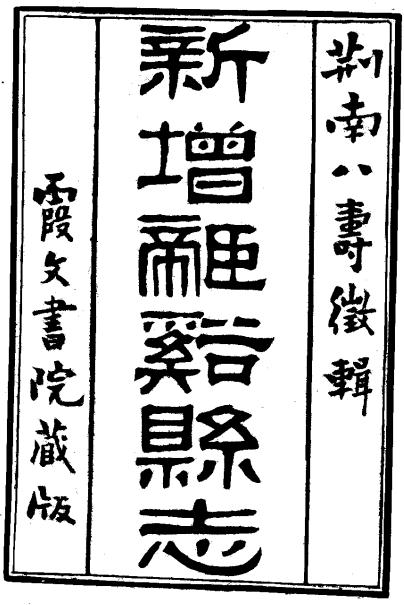 荆南八壽徵輯
新增龍谿縣志
霞文書院藏版